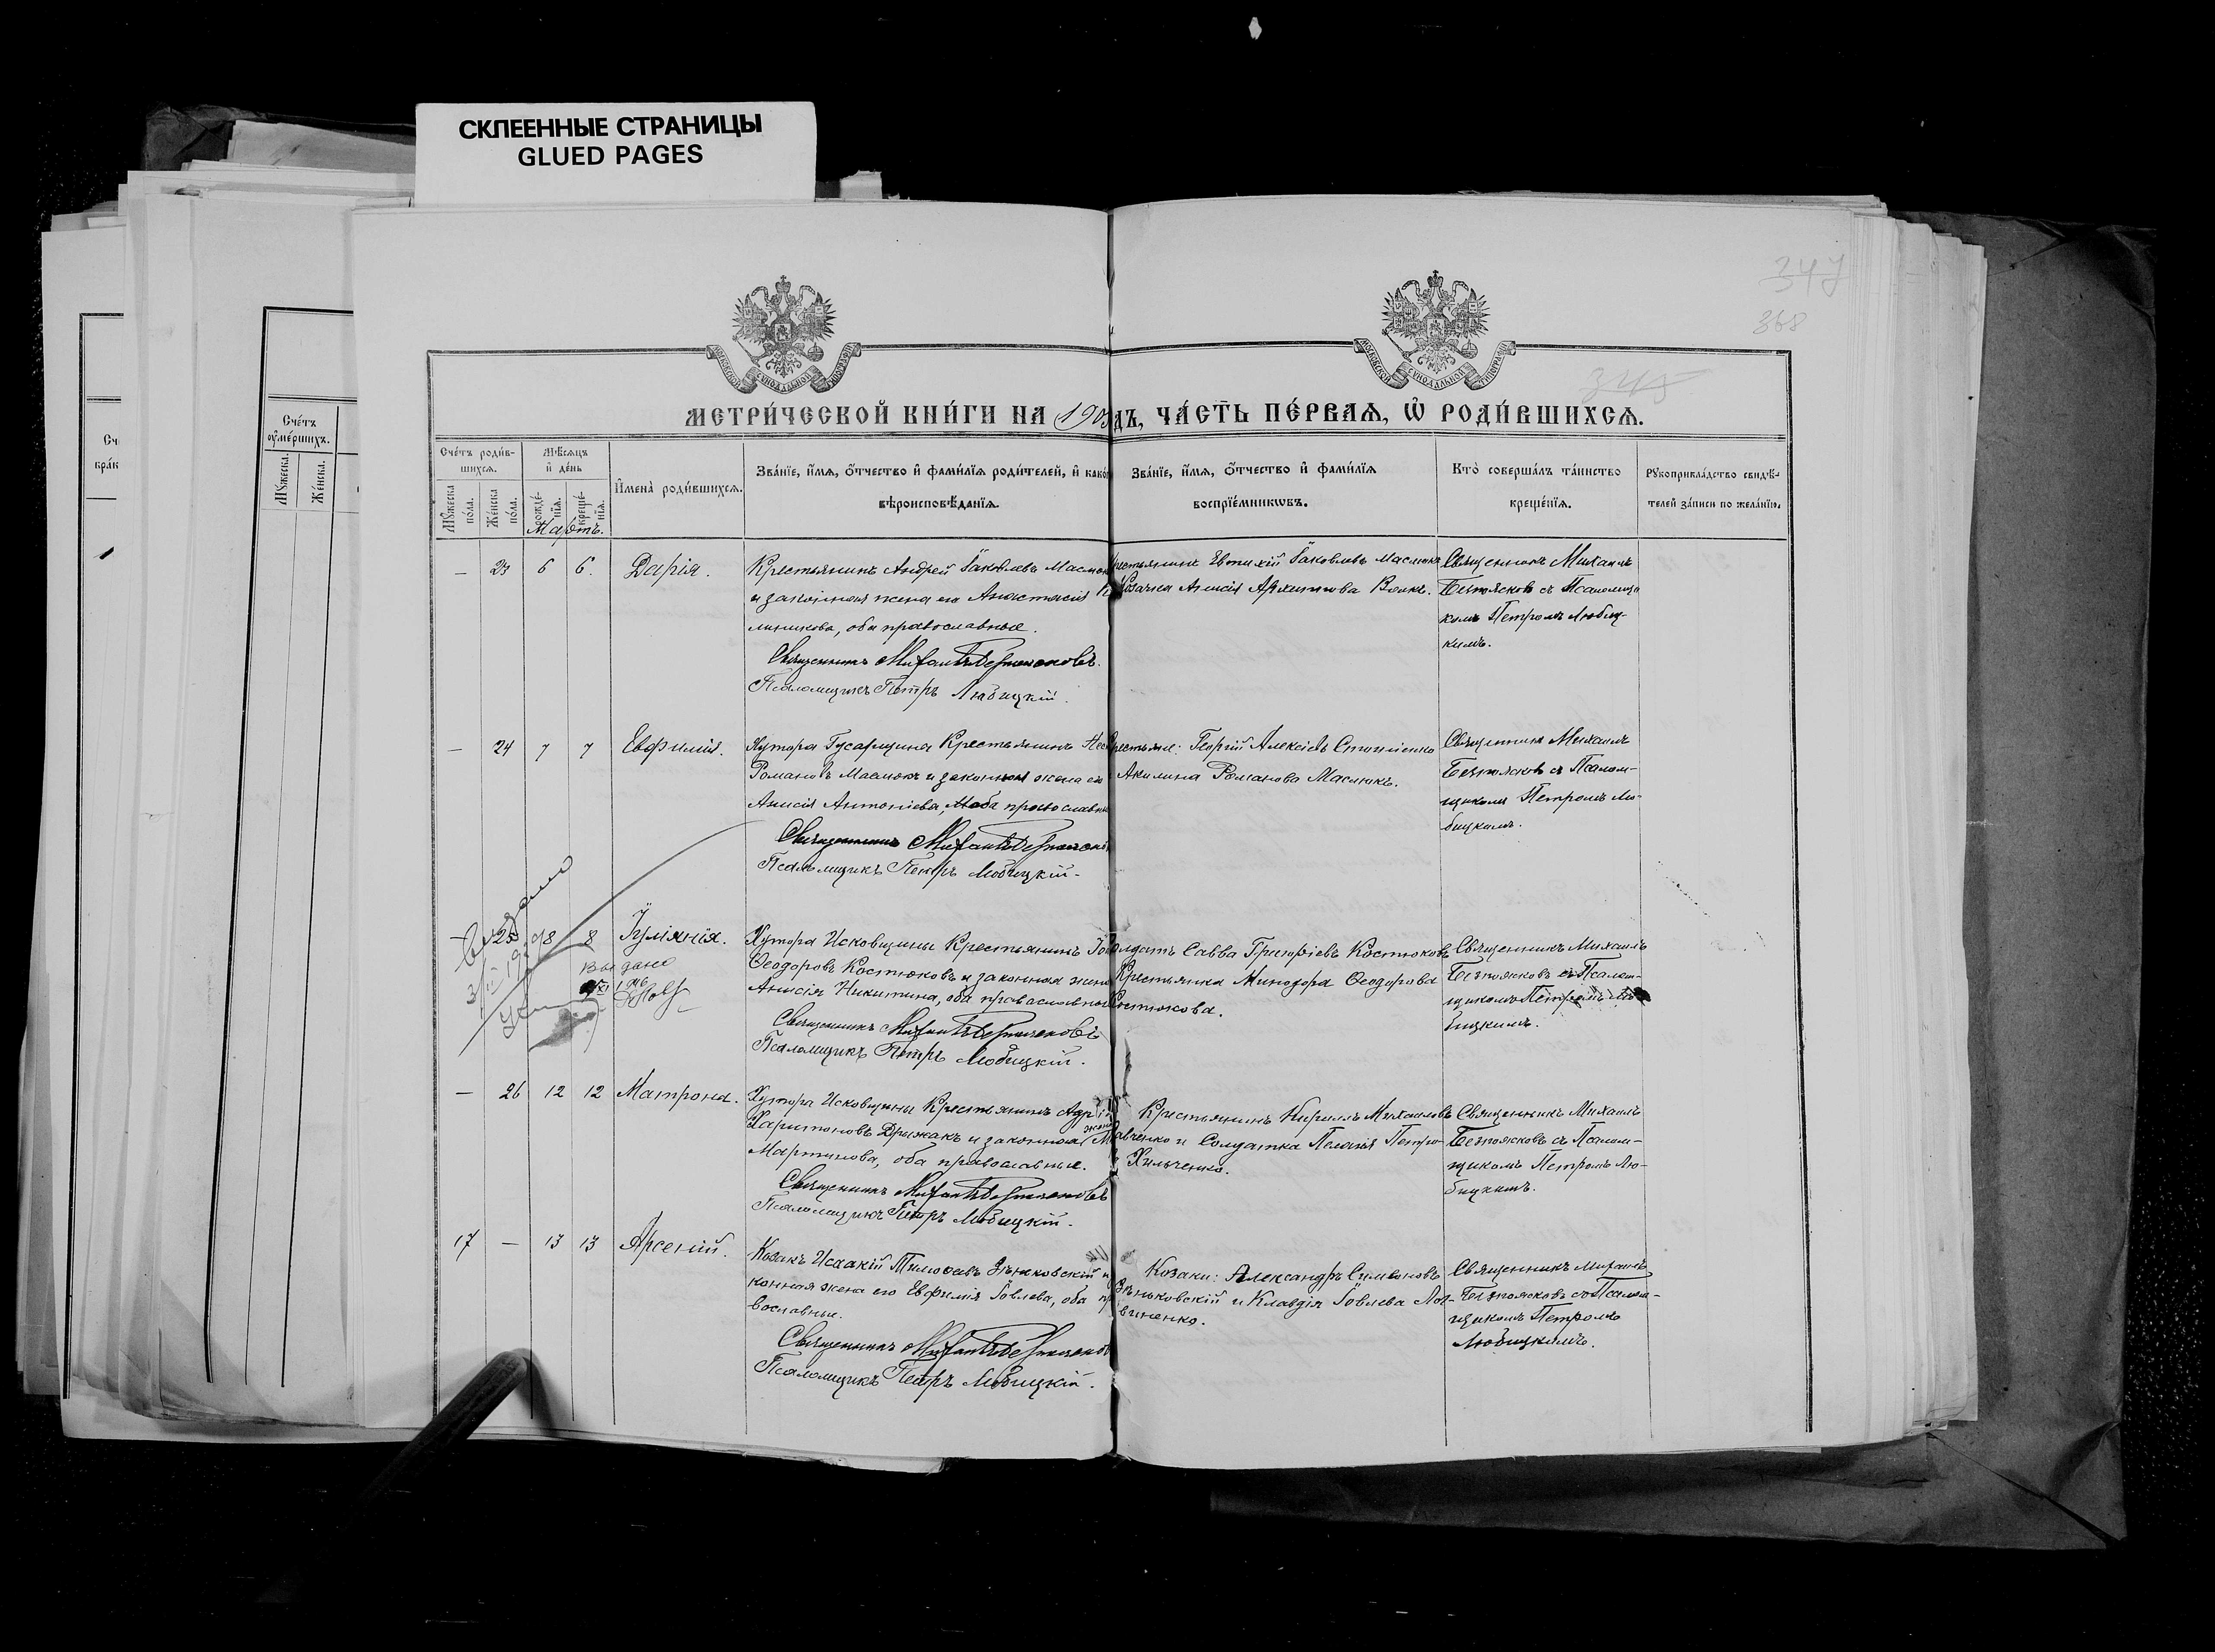 СКЛЕЕННЫЕ СТРАНИЦЫ
GLUED PAGES
347
368
345
МОСКОВСКОЙ СѴНОДАЛЬНОЙ ТИПОГРАФІИ
МОСКОВСКОЙ СѴНОДАЛЬНОЙ ТИПОГРАФІИ
МЕТРИ́ЧЕСКОЙ КНИ́ГИ НА 190 ДЪ, ЧА́СТЬ ПЕ́РВАЯ, Ѡ҆ РОДИ́ВШИХСѦ.
Сче́тъ ᲂу҆ме́ршихъ.
Мꙋ́жеска.
Же́нска.
Сче́тъ роди́в-
шихся.
Мꙋ́жеска по́ла.
Же́нска по́ла.
Мѣ́сяцъ
и҆ де́нь
рожде́-нїя.
креще́-нїя.
И҆мена̀ роди́вшихся.
Зва́нїе, и҆́мя, ѻ҆́тчество и҆ фами́лїя роди́телей, и҆
вѣроисповѣ́данїя.
Зва́нїе, и҆́мя, ѻ҆́тчество и҆ фами́лїя
воспрїе́мникѡвъ.
Кто̀ соверша́лъ та́инство
креще́нїя.
Рꙋкоприкла́дство свидѣ́-
телей за́писи по жела́нїю.
Мартъ.
— 23 6 6. Дарія.
Крестьянинъ Андрей Іаковлевъ
и законная жена его Анастасія
оба православные.
Священникъ Михаилъ Безпоясковъ.
Псаломщикъ Петръ Любицкій.
Евтихій Іаковлевъ Маслюкъ
Козачка Анисія Архиппова Волкъ.
Священникъ Михаилъ
Безпоясковъ съ Псаломщи
комъ Петромъ Любиц-
кимъ.
— 24 7 7 Евфимія.
Хутора Гусарщина Крестьянинъ
Романовъ Маслюкъ и законная жена его
Анисія Антоніева, оба
Священникъ Михаилъ
Псаломщикъ Петръ Любицкій.
Георгій Алексіевъ
Акилина Романова Маслюкъ.
Священникъ Михаилъ
Безпоясковъ съ Псалом-
щикомъ Петромъ Лю-
бицкимъ.
— 25 8 8 Іуліанія.
Выдано
Хутора Исковщины Крестьянинъ
Ѳеодоровъ Костюковъ и законная жена
Анисія Никитина, оба православные
Священникъ Михаилъ Безпоясковъ
Псаломщикъ Петръ Любицкій.
Савва Григоріевъ Костюковъ
Крестьянка Минодора Ѳеодорова
Костюкова.
Священникъ Михаилъ
Безпоясковъ съ Псалом-
щикомъ Петромъ Лю
бицкимъ.
— 26 12 12 Матрона.
Хутора Исковщины Крестьянинъ
Харитоновъ Дрыжакъ и законная жена
Мартинова, оба православные.
Священникъ Михаилъ Безпоясковъ
Псаломщикъ Петръ Любицкій.
Крестьянинъ Кириллъ Михаиловъ
и Солдатка Пелагія Петро-
Хильченко.
Священникъ Михаилъ
Безпоясковъ съ Псалом-
щикомъ Петромъ Лю-
бицкимъ.
17 — 13 13 Арсеній.
Козакъ Исаакій Тимоѳеевъ Зѣньковскій и
конная жена его Евфимія Іовлева, оба пр
вославные.
Священникъ Михаилъ
Псаломщикъ Петръ Любицкій.
Козаки: Александръ Симеоновъ
Зѣньковскій и Клавдія Іовлева Лит-
виненко.
Священникъ Михаилъ
Безпоясковъ съ Псалом-
щикомъ Петромъ
Любицкимъ.